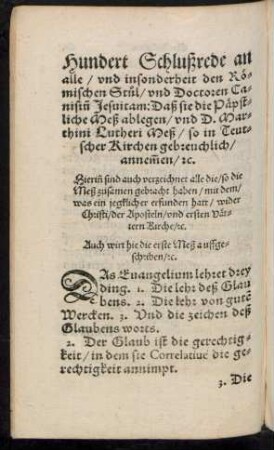 Hundert Schlußrede an
alle / vnd insonderheit den Rö-
mischen Stůl / vnd Doctoren Ca-
nisiũ Jesuitam: Daß sie die Päpst-
liche Meß ablegen / vnd D. Mar-
thini Lutheri Meß / so in Teut-
scher Kirchen gebreuchlich /
annem̃en / ꝛc.
Hierin̄ sind auch verzeichnet alle die / so die
Meß zusamen gebracht haben / mit dem /
was ein jegklicher erfunden hatt / wider
Christi / der Aposteln / vnd ersten våt-
tern Kirche / ꝛc.
Auch wirt hie die erste Meß auffge-
schriben / ꝛc.
DAs Euangelium lehret drey
ding. 1. Die lehr deß Glau
bens. 2. Die lehr von gutẽ
Wercken. 3. Vnd die zeichen deß
Glaubens worts.
2. Der Glaub ist die gerechtig-
keit / in dem sie Correlatiuè die ge-
rechtigkeit annimpt.
3. Die